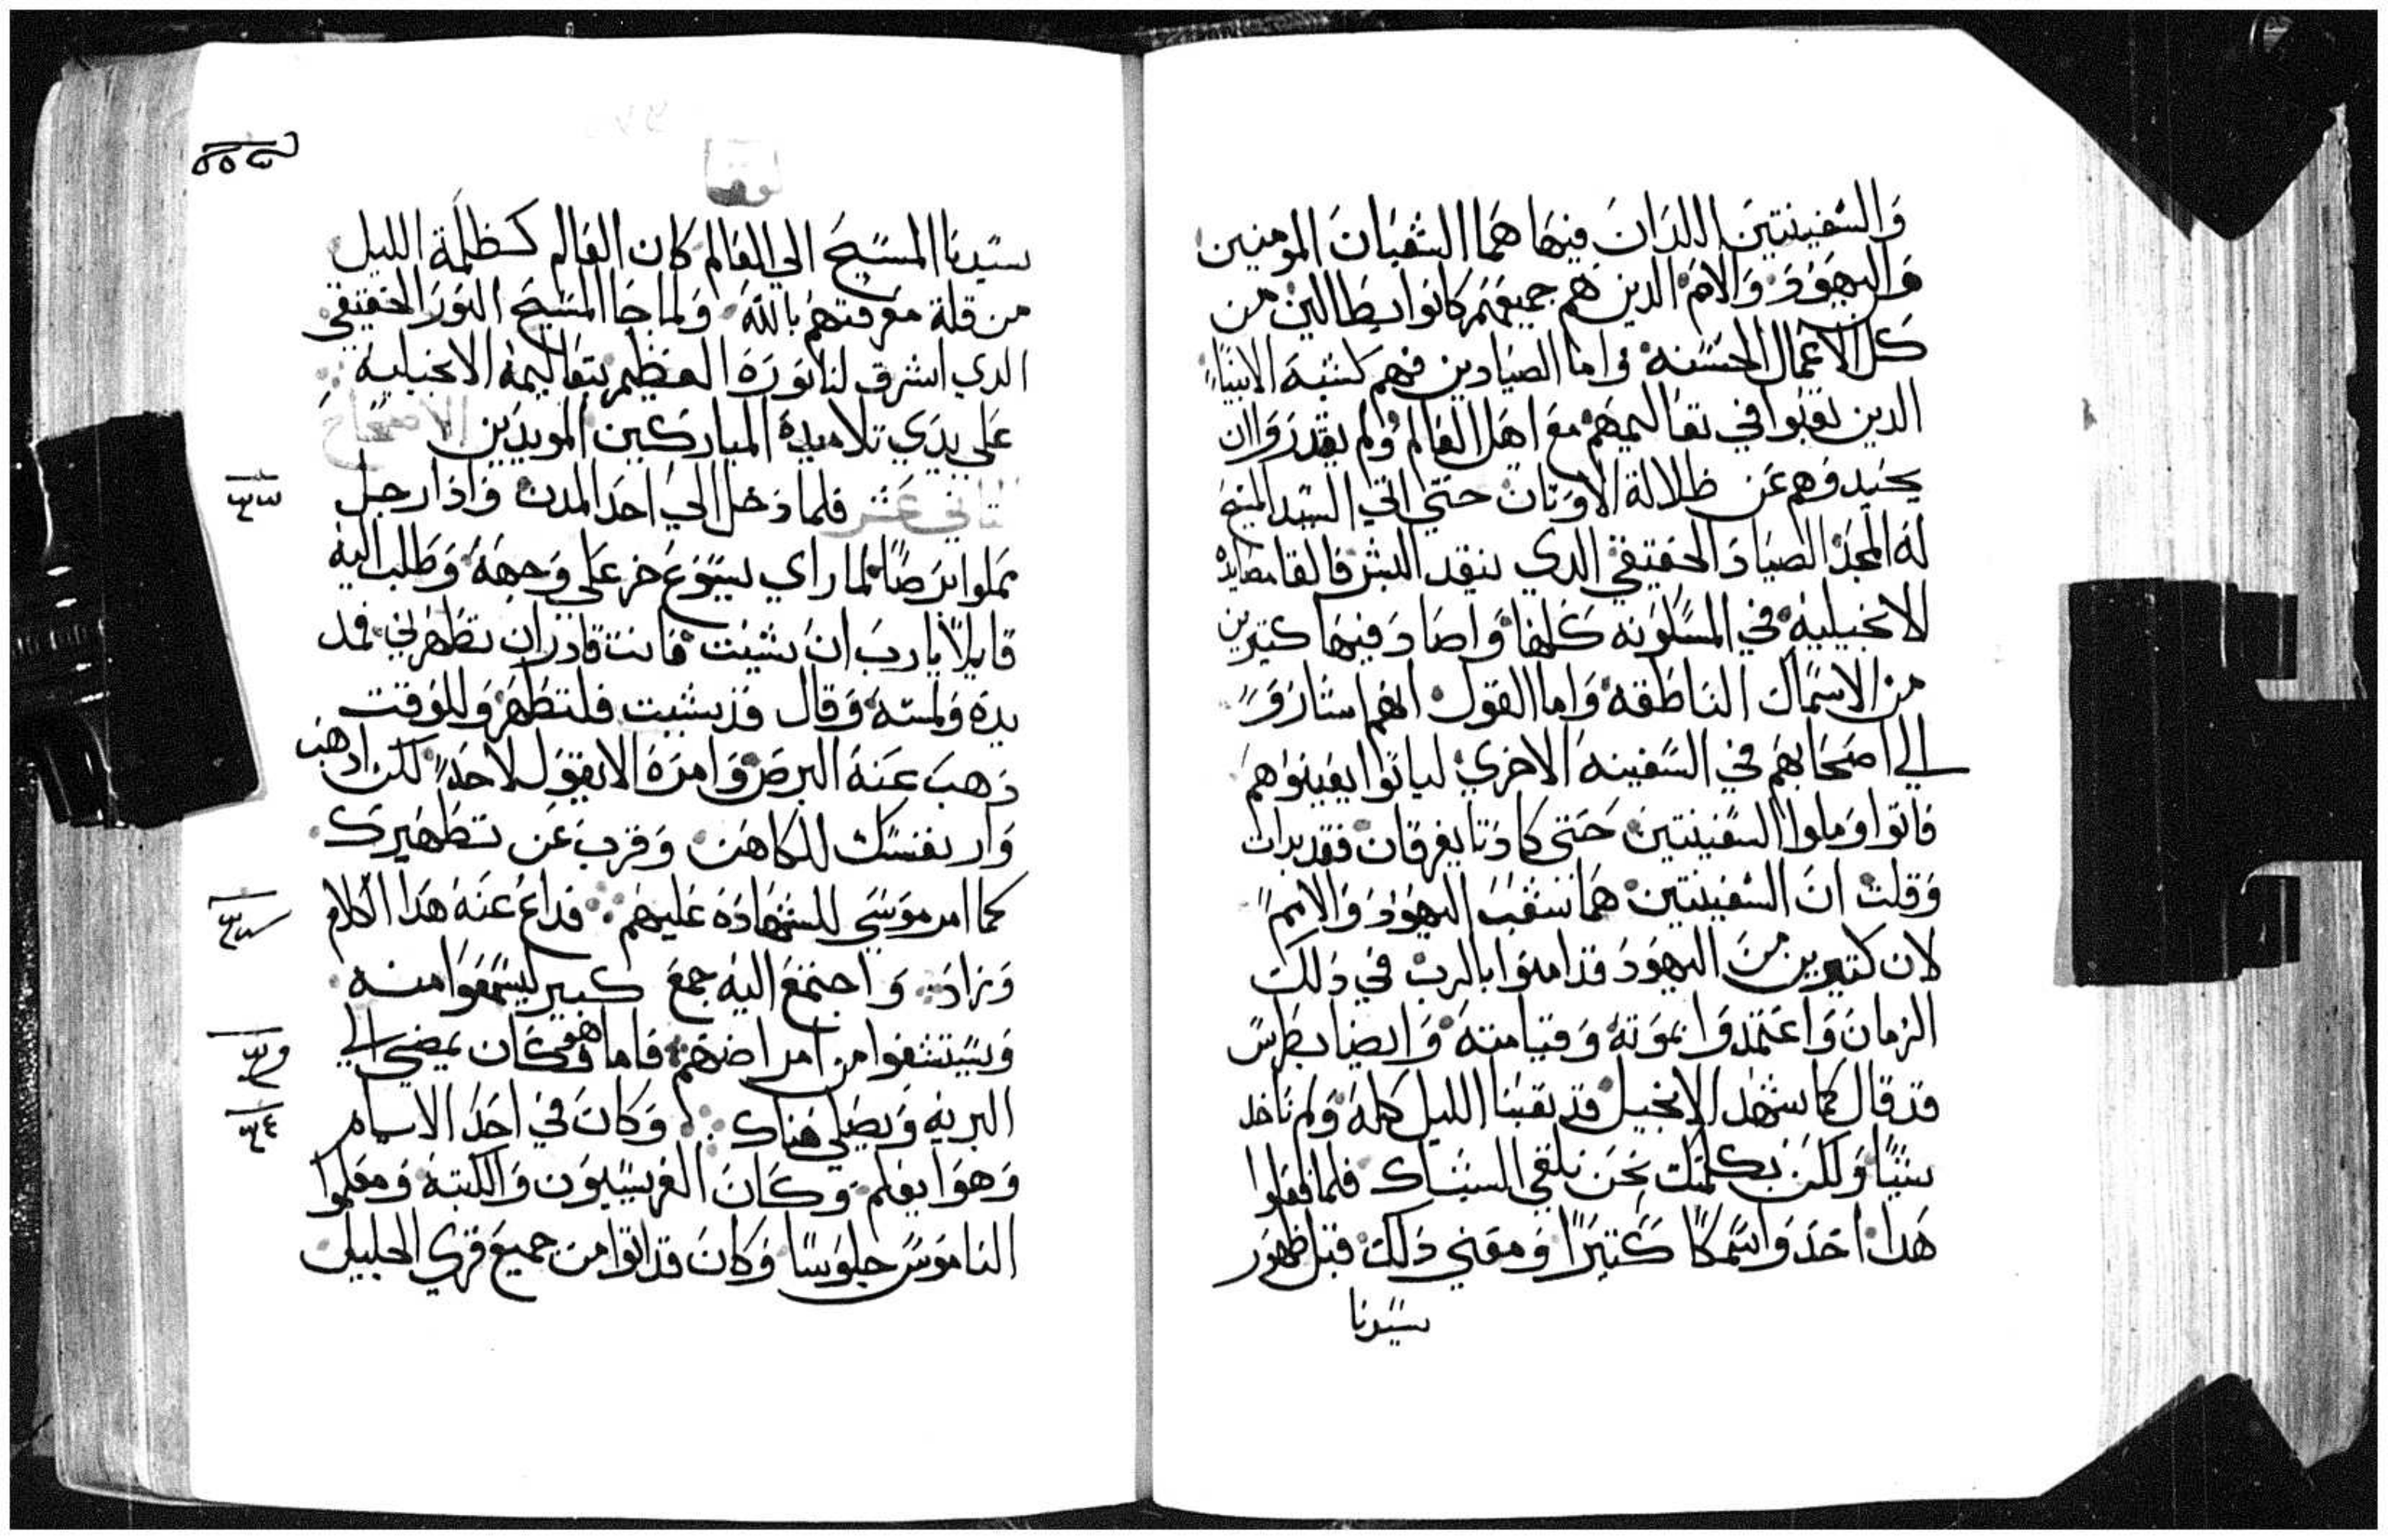 والسفينتين اللدان فيها هما الشعبان المومنين
واليهود والامم الدين هم جميعهم كانوا بطالين من
كل الاعمال الحسنة واما الصيادين فهم كشبه الانبيا
الدين تعبوا في تعاليمهم مع اهل العالم ولم يقدروا ان
يجيدوهم عن ظلالة الاوتان حتي اتي السيد المسيح
له المجد الصياد الحقيقي الدي ينقد البشر فالقا مصايده
الانجيلية في المسكونه كلها واصاد فيها كتيرين
من الاسماك الناطقه واما القول انهم اشاروا
الي اصحابهم في السفينه الاخري لياتوا يعينوهم
فاتوا وملوا السفينتين حتي كادتا يغرقان فقد بدات
وقلت ان السفينتين هما شعب اليهود والامم
لان كتيرين من اليهود قد امنوا بالرب في دلك
الزمان واعتمدوا بموته وقيامته وايضا بطرس
قد قال كما شهد الانجيل قد تعبنا الليل كله ولم ناخد
شيئا ولكن بكلمتك نحن نلقي الشباك فلما فعلوا
هدا اخدوا سمكا كتيرا ومعني دلك قبل ظهور
سيدنا
لوقا
سيدنا المسيح الي العالم كان العالم كظلمة الليل
من قلة معرفتهم بالله ولما جا المسيح النور الحقيقي
الدي اشرق لنا نوره العظيم بتعاليمه الانجيلية
علي يدي تلاميده المباركين المويدين الاصحاح
التاني عشر فلما دخل الي احد المدن واذا رجل
مملوا برصا لما راي يسوع خر علي وجهه وطلب اليه
قايلا يارب ان شيت فانت قادر ان تطهرني فمد
يده ولمسه وقال قد شيت فلتطهر وللوقت
دهب عنه البرص وامره الا يقول لاحد لكن ادهب
وار نفسك للكاهن وقرب عن تطهيرك
كما امر موسي للشهادة عليهم فداع عنه هدا الكلام
وزاد واجتمع اليه جمع كبير ليسمعوا منه
ويستشفوا من امراضهم فاما هو فكان يمضي الي
البريه ويصلي هناك وكان في احد الايام
وهوا يعلم وكان الفريسيون والكتبة ومعلموا
الناموس جلوسا وكان قد اتوا من جميع قري الجليل